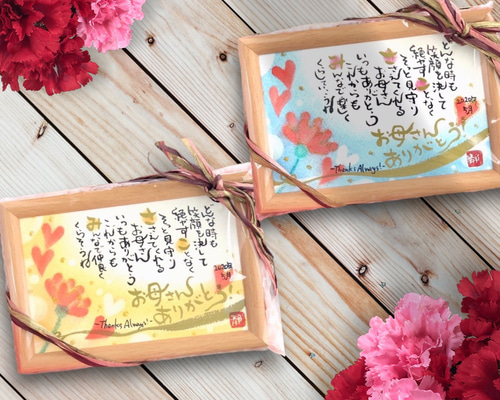 どんな時も
笑顔を決して
絶やすことなく
そっと見守り
ささえてくれる
お母さん
いつもありがとう
これからも
みんなで仲良く
くらそうね
お母さん
ありがとう!
-Thanks Always!-
どんな時も
笑顔を決して
絶やすことなく
そっと見守り
ささえてくれる
お母さん
いつもありがとう
これからも
みんなで仲良く
くらそうね
お母さん
ありがとう!
-Thanks Always!-